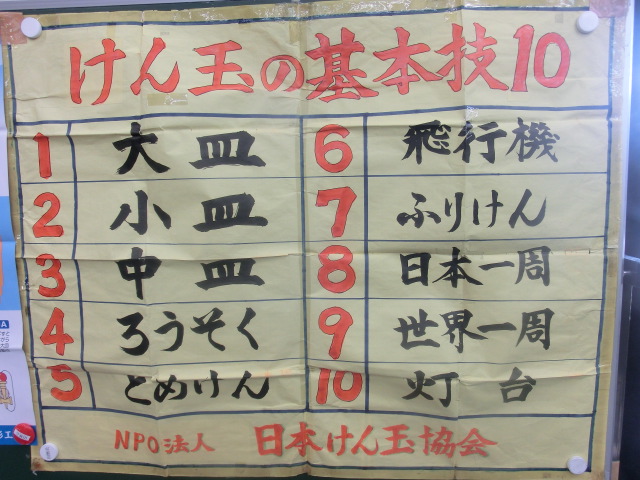 けん玉の基本技10
1 大皿
2 小皿
3 中皿
4 ろうそく
5 とめけん
6 飛行機
7 ふりけん
8 日本一周
9 世界一周
10 灯台
NPO法人 日本けん玉協会